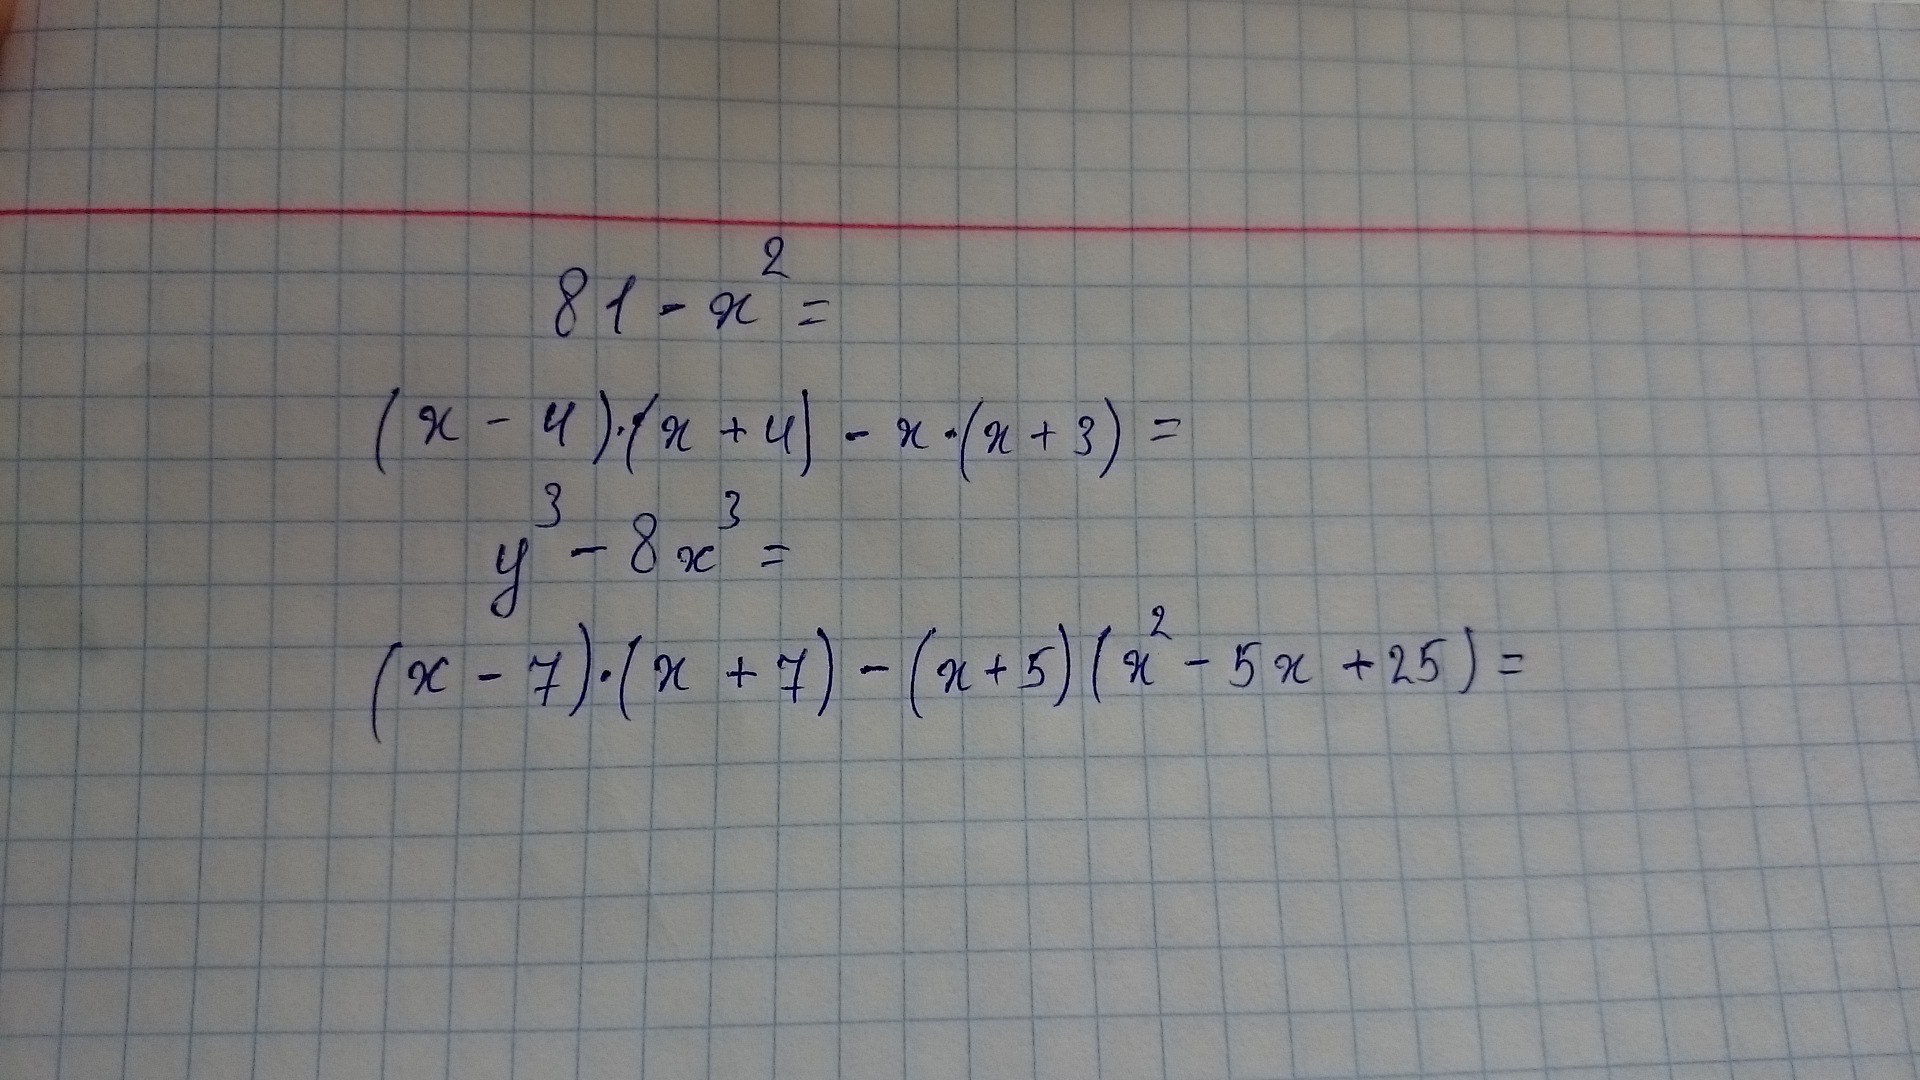 81 - x² =
(x - 4)·(x + 4) - x·(x + 3) =
y³ - 8x³ =
(x - 7)·(x + 7) - (x + 5)(x² - 5x + 25) =